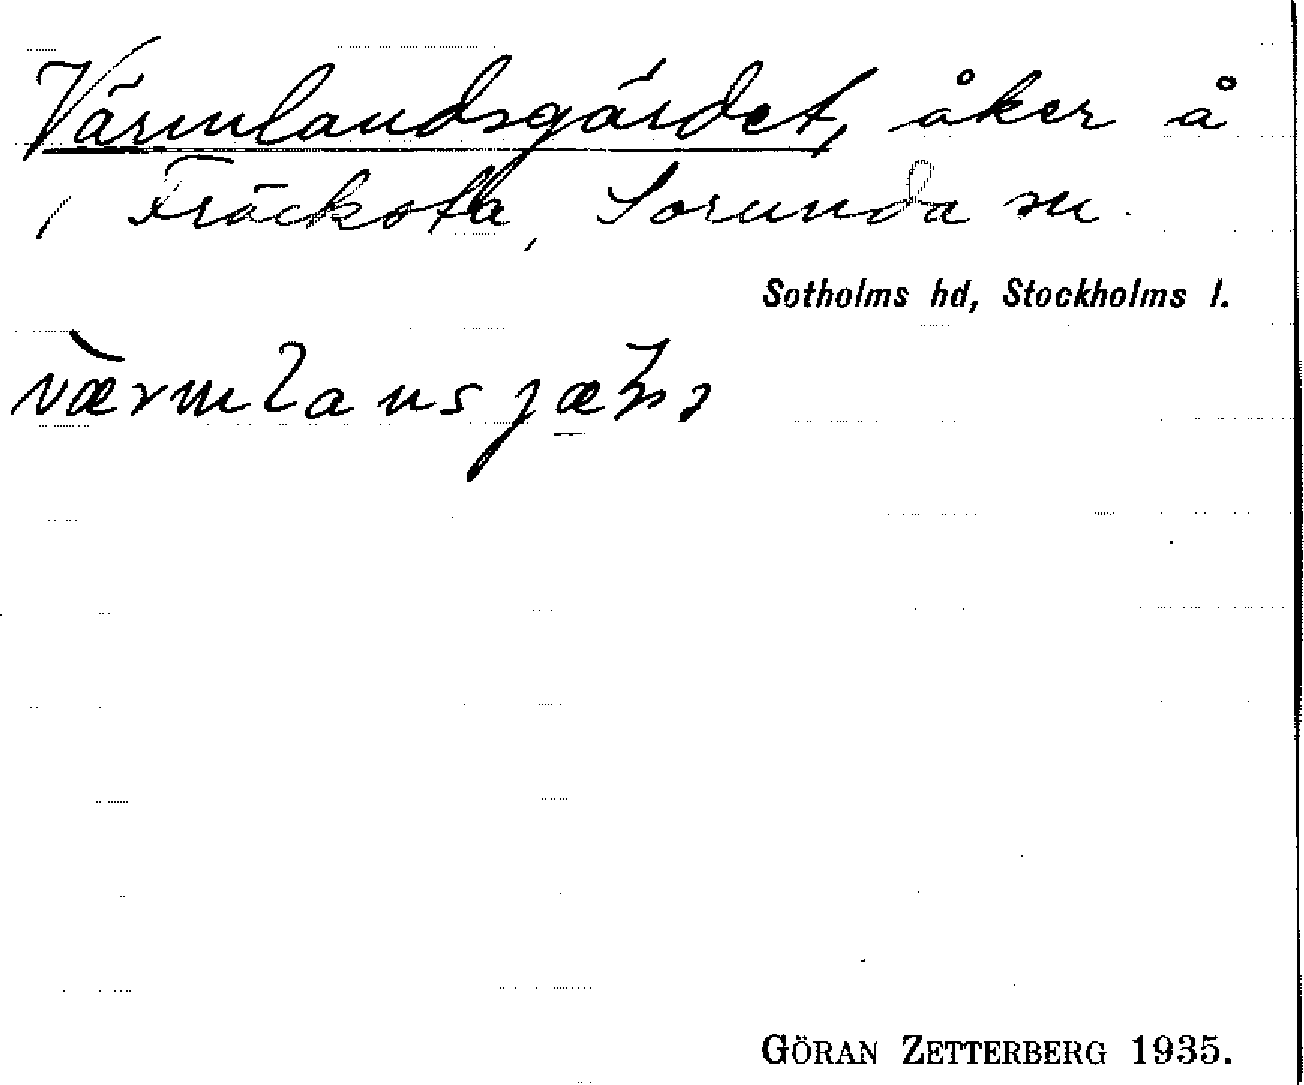 Värmlandsgärdet, åker å
1 Fräcksta, Sorunda sn.
Sotholms hd, Stockholms l.
GÖRAN ZETTERBERG 1935.